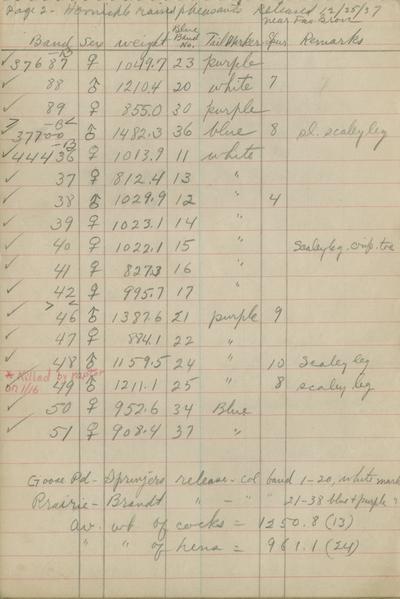 Page 2 - Hornicht mains pheasants Released 12/25/37
near Fas Grove
Band Sex weight Blue Band No. Tail Marker Spur Remarks
-B
✓ 37687 ♀ 1049.7 23 purple
✓ 88 ♂ 1210.4 20 white 7
✓ 89 ♀ 855.0 30 purple
> -B <
✓ 37700 ♂ 1482.3 36 blue 8 sl. scaley leg
-B
✓ 444436 ♀ 1013.9 11 white
✓ 37 ♀ 812.4 13 "
✓ 38 ♂ 1029.9 12 " 4
✓ 39 ♀ 1023.1 14 "
✓ 40 ♀ 1022.1 15 " Scaley leg. crip. toe
✓ 41 ♀ 827.3 16 "
✓ 42 ♀ 995.7 17 "
> <
✓ 46 ♂ 1387.6 21 purple 9
✓ 47 ♀ 884.1 22 "
✓ 48 ♂ 1159.5 24 " 10 Scaley leg
* Killed by raptor
on 1/16
✓ 49 ♂ 1211.1 25 " 8 scaley leg
✓ 50 ♀ 952.6 34 Blue
✓ 51 ♀ 908.4 37 "
Goose Pd - Springers release - col band 1-20, white mark
Prairie - Brandt " - " " 21-38 blue & purple
Av. wt of cocks = 1250.8 (13)
" " of hens = 961.1 (24)